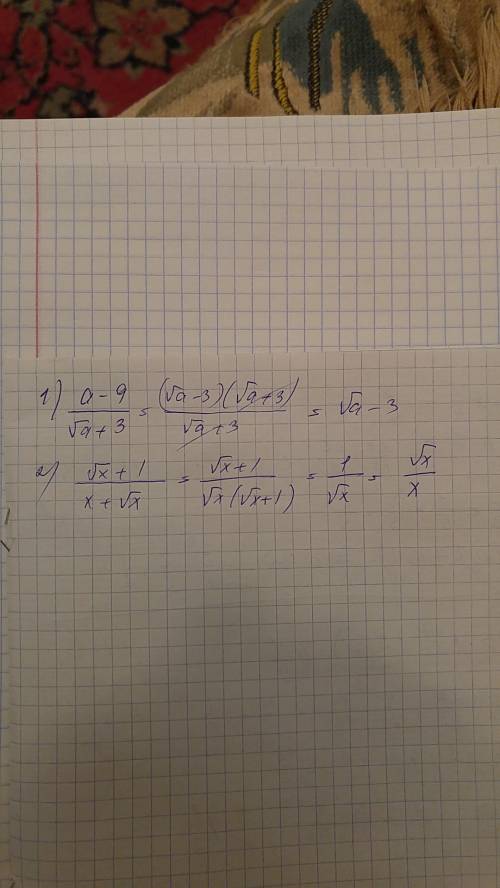 1) (a-9)/(√a+3) = ((√a-3)(√a+3))/(√a+3) = √a-3
2) (√x+1)/(x+√x) = (√x+1)/(√x(√x+1)) = 1/√x = √x/x